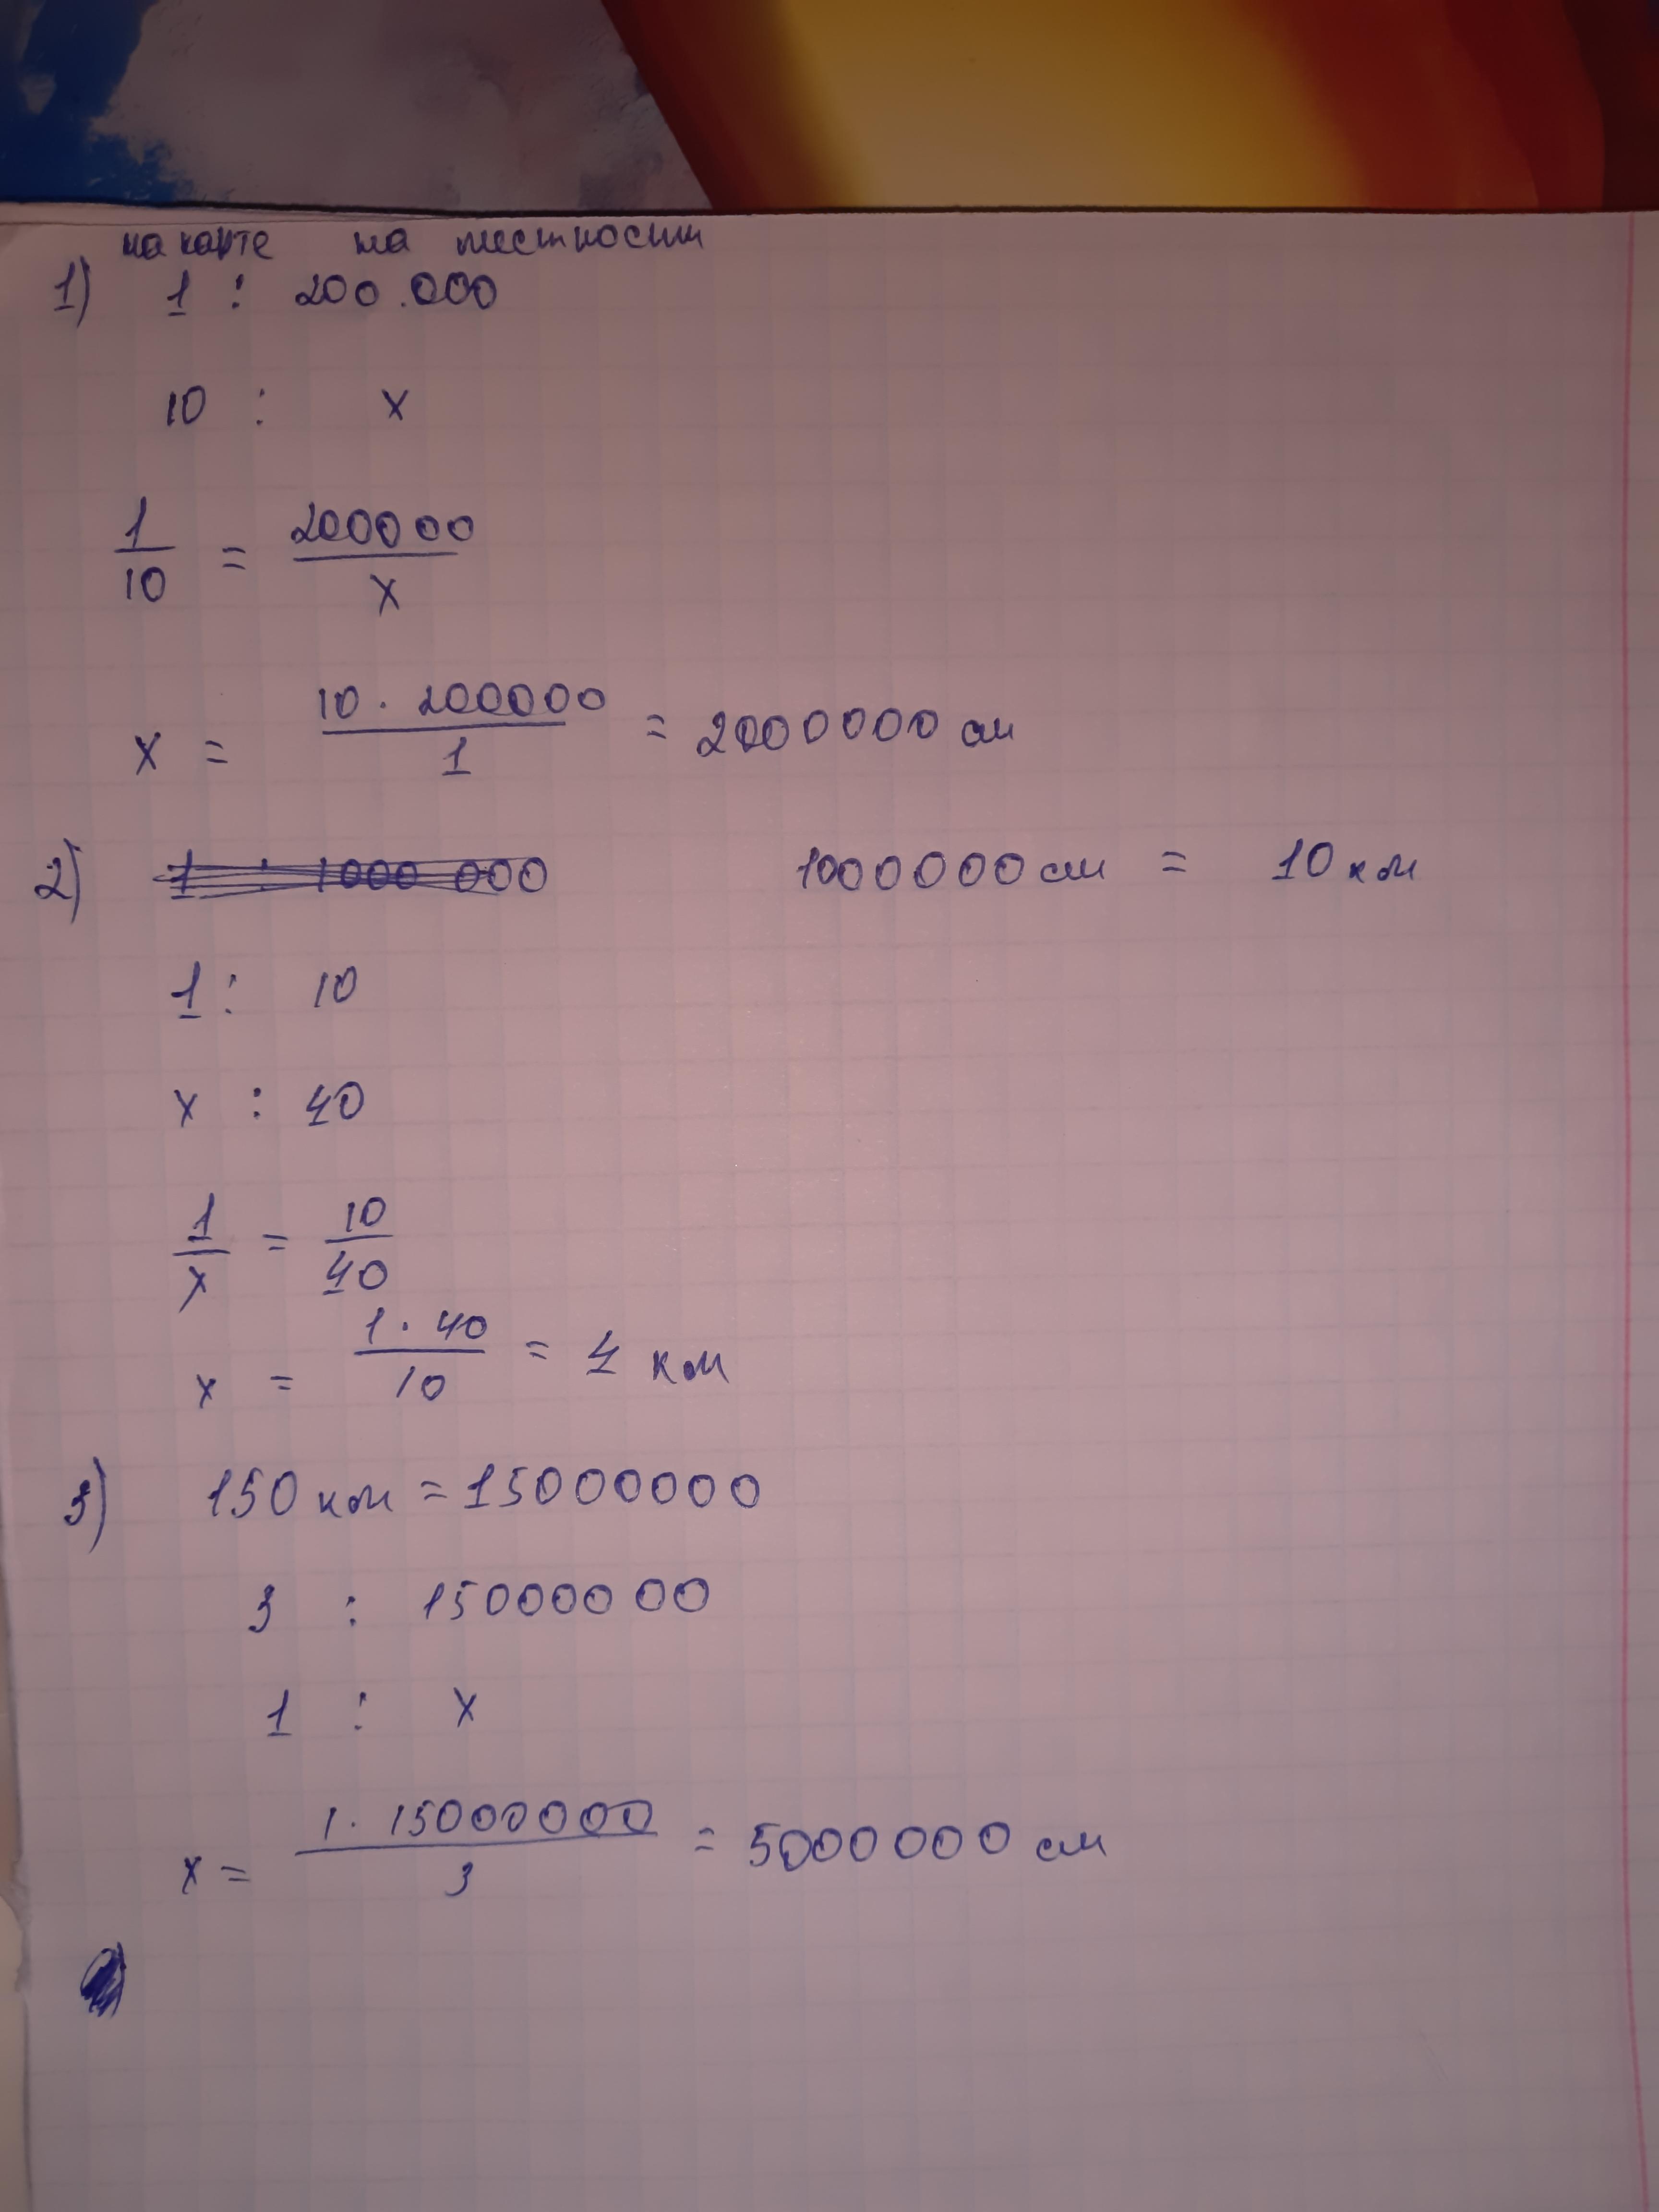 на карте на местности
1) 1 : 200.000
10 : x
1/10 = 200000/x
x = 10 · 200000/1 = 2000000 см
2) 1 : 1000 000 1000000 см = 10 км
1 : 10
x : 40
1/x = 10/40
x = 1 · 40/10 = 4 км
3) 150 км = 15000000
3 : 15000000
1 : x
x = 1 · 15000000/3 = 5000000 см